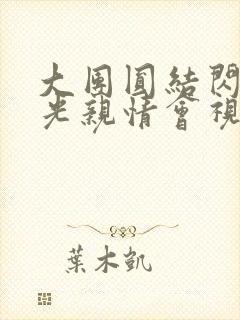 大團圓結閃
光親情會視
葉木凱